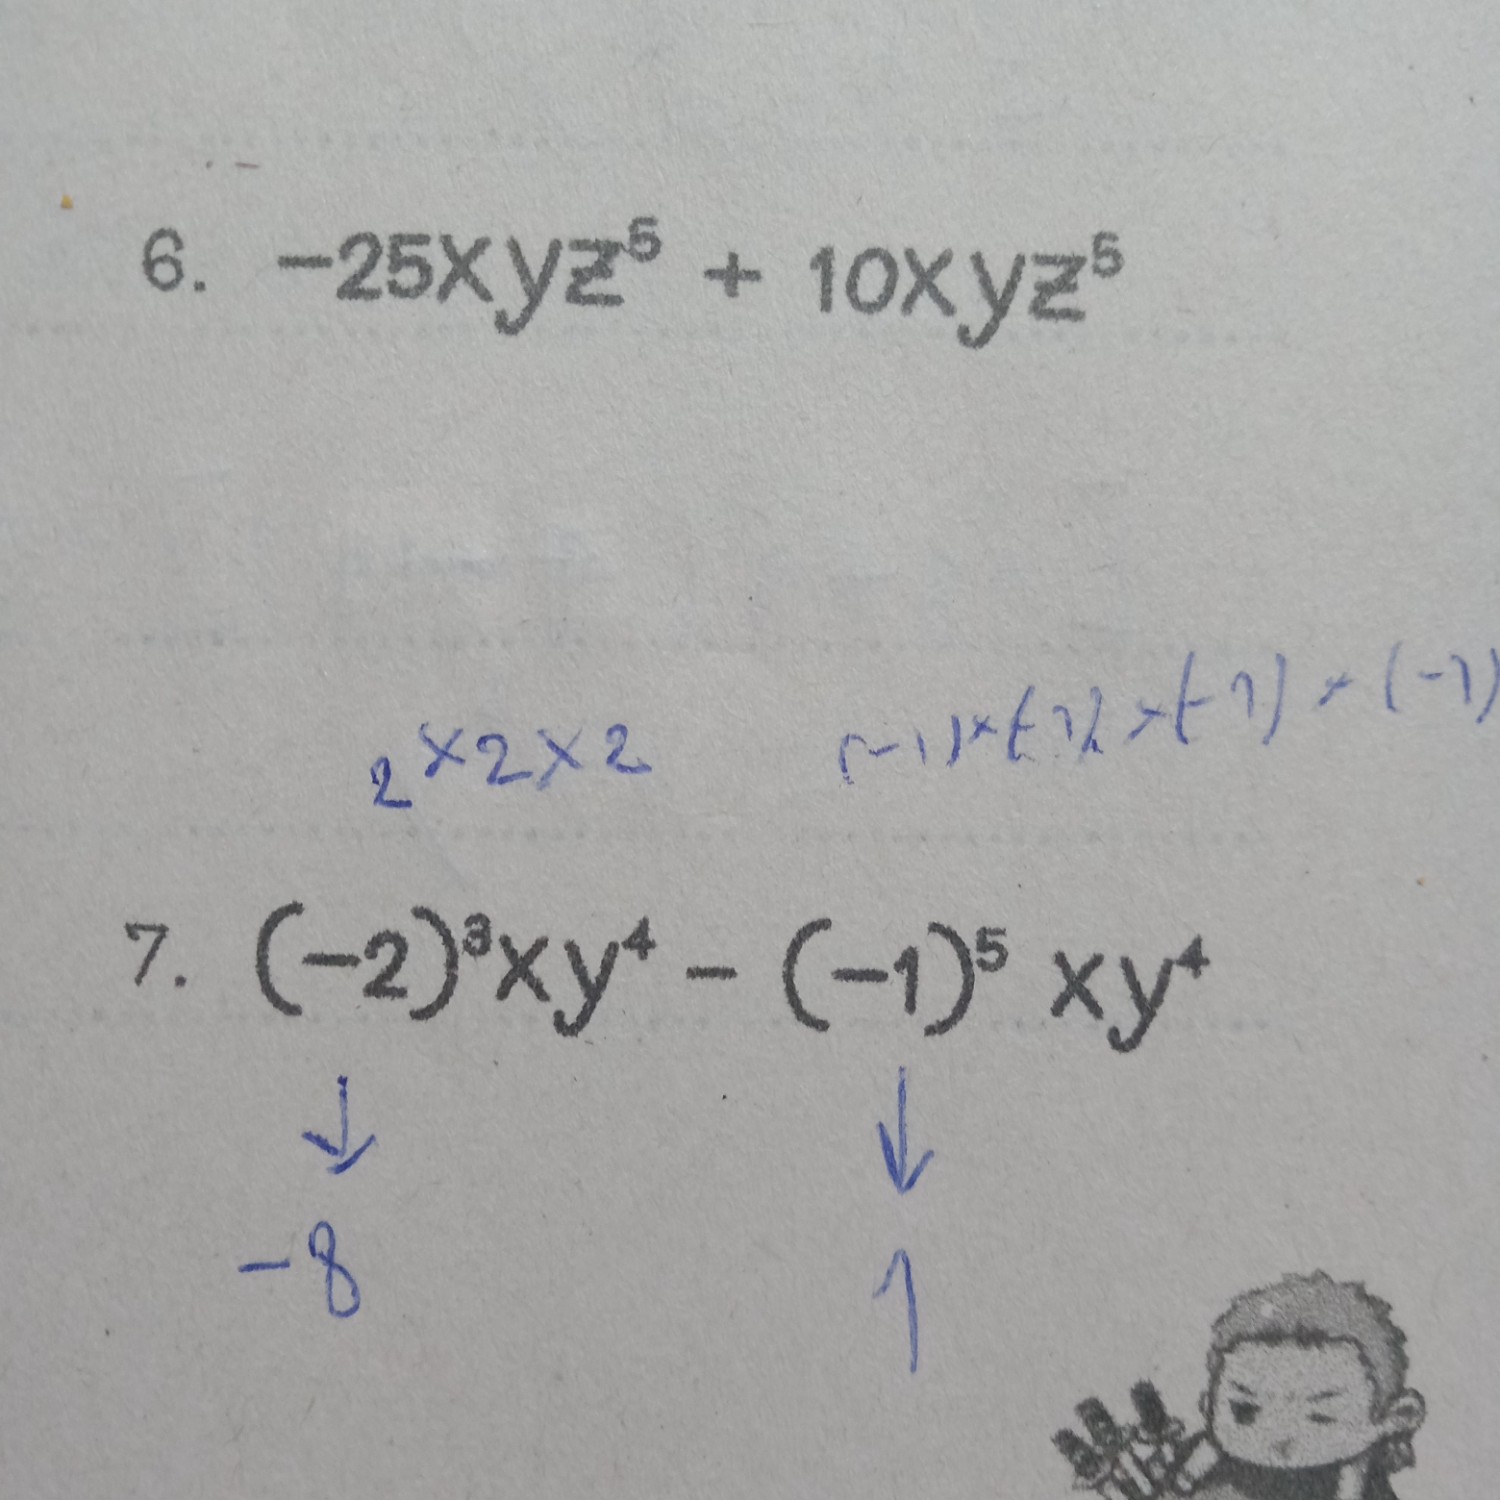 6. -25xyz⁵ + 10xyz⁵
2×2×2 (-1)×(-1)×(-1)×(-1)
7. (-2)³xy⁴ - (-1)⁵ xy⁴
↓ ↓
-8 1